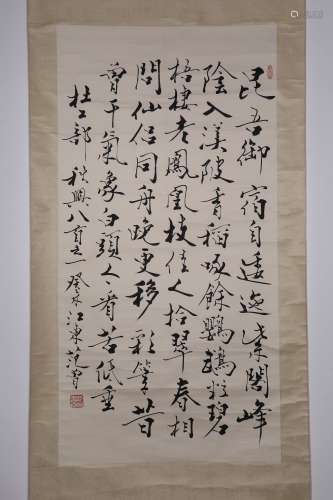 昆吾御宿自逶迤紫閣峰
陰入渼陂香稻啄餘鸚鵡粒碧
梧棲老鳳凰枝佳人拾翠春相
問仙侶同舟晚更移彩筆昔
曾干氣象白頭苦低垂
杜工部秋興八首之一癸未江東范曾